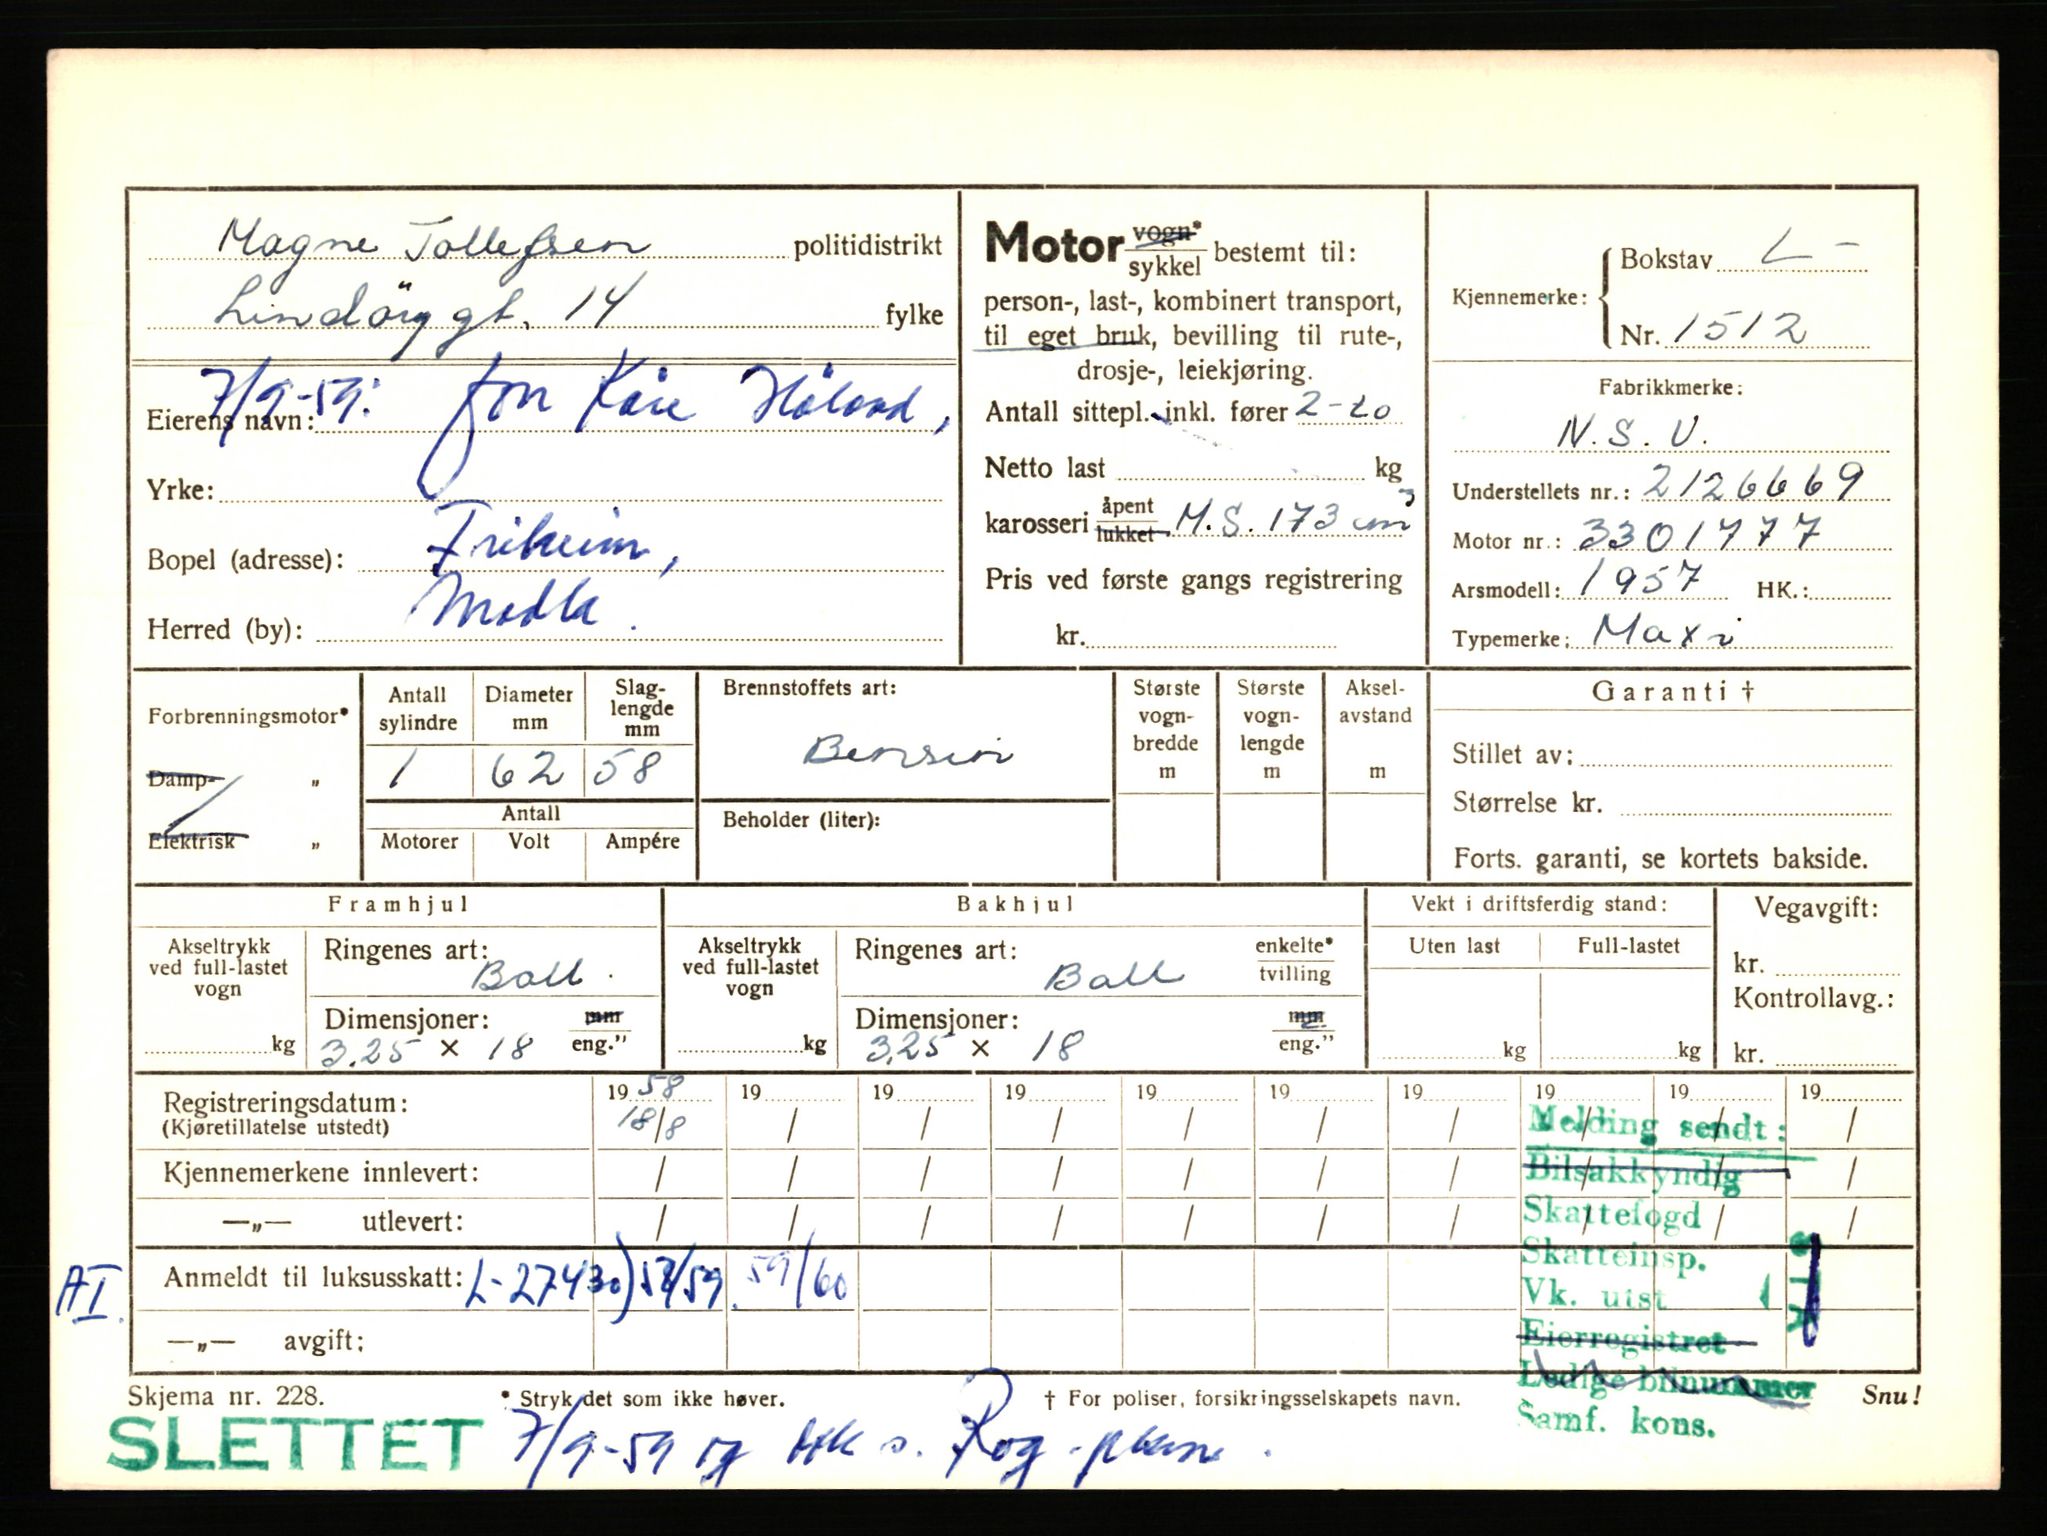 Magne Tollefsen politidistrikt
Lindöy gt. 14 fylke
7/9-59: for Kåre Håland,
Eierens navn:
Yrke:
Bopel (adresse): Friheim,
Herred (by): Madla.
Motor vogn* / sykkel bestemt til:
person-, last-, kombinert transport,
til eget bruk, bevilling til rute-,
drosje-, leiekjøring.
Antall sittepl. inkl. fører 2-to
Netto last kg
karosseri åpent / lukket M.S. 173 cm³
Pris ved første gangs registrering
kr.
Kjennemerke: { Bokstav L-
Nr. 1512
Fabrikkmerke:
N.S.U.
Understellets nr.: 2126669
Motor nr.: 3301777
Arsmodell: 1957 HK.:
Typemerke: Maxi
Forbrenningsmotor*
Damp- „
Elektrisk „
Antall sylindre Diameter mm Slag-lengde mm
1 62 58
Antall
Motorer Volt Ampére
Brennstoffets art:
Bensin
Beholder (liter):
Største vogn-bredde m
Største vogn-lengde m
Aksel-avstand m
Garanti †
Stillet av:
Størrelse kr.
Forts. garanti, se kortets bakside.
Framhjul
Akseltrykk ved full-lastet vogn
kg
Ringenes art: Ball.
Dimensjoner: mm / eng."
3.25 × 18
Bakhjul
Akseltrykk ved full-lastet vogn
kg
Ringenes art: Ball enkelte* / tvilling
Dimensjoner: mm / eng."
3.25 × 18
Vekt i driftsferdig stand:
Uten last Full-lastet
kg kg
Vegavgift:
kr.
Kontrollavg.:
kr.
19 58 19 19 19 19 19 19 19 19 19
Registreringsdatum:
(Kjøretillatelse utstedt) 18/8 / / / / / / / / /
Kjennemerkene innlevert: / / / / / / / / / /
—„— utlevert: / / / / / / / / / /
AI. Anmeldt til luksusskatt: L-27430) 58/59. 59/60
—„— avgift:
Melding sendt:
Bilsakkyndig
Skattefogd
Skatteinsp.
Vk. utst
Eierregistret
Ledige bilnummer
Samf. kons.
Skjema nr. 228. * Stryk det som ikke høver. † For poliser, forsikringsselskapets navn. Snu!
SLETTET 7/9-59 og